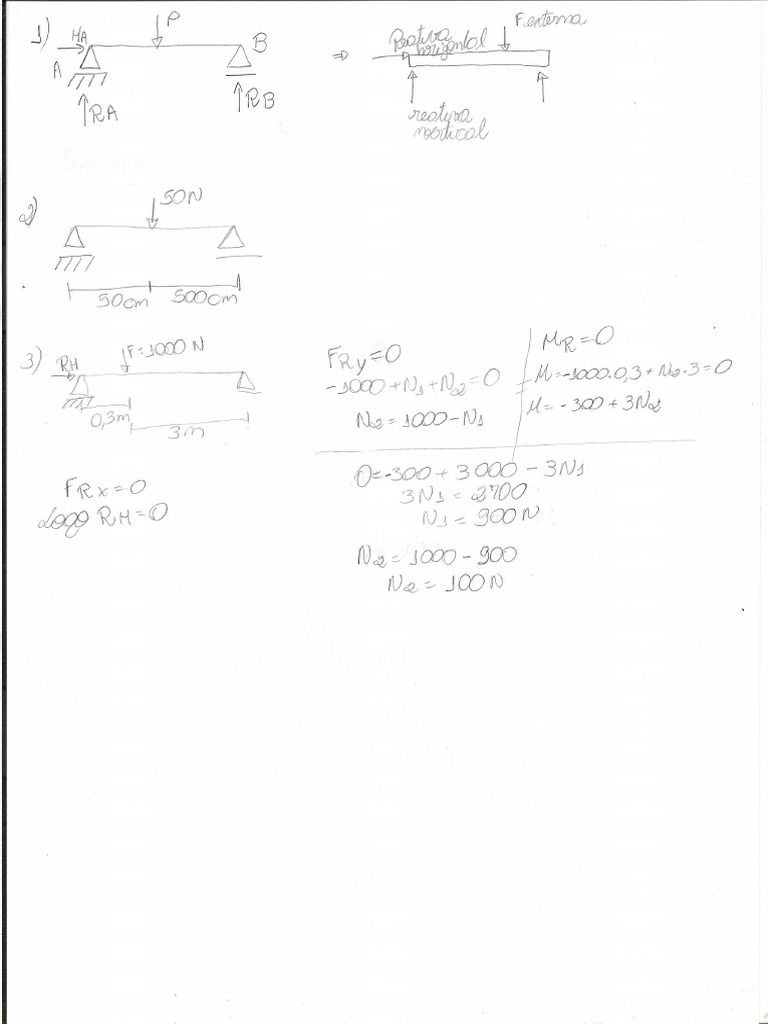 1) HA P B
A
RA RB
⇒ Reativa horizontal F.externa
reativa vertical
2) 50N
50cm 500cm
3) RH F=1000 N
0,3m
3m
FRx=0
Logo RH=0
FRy=0
-1000+N1+N2=0
N2=1000-N1
MR=0
M=-1000.0,3+N2.3=0
M=-300+3N2
0=-300+3000-3N1
3N1=2700
N1=900N
N2=1000-900
N2=100N